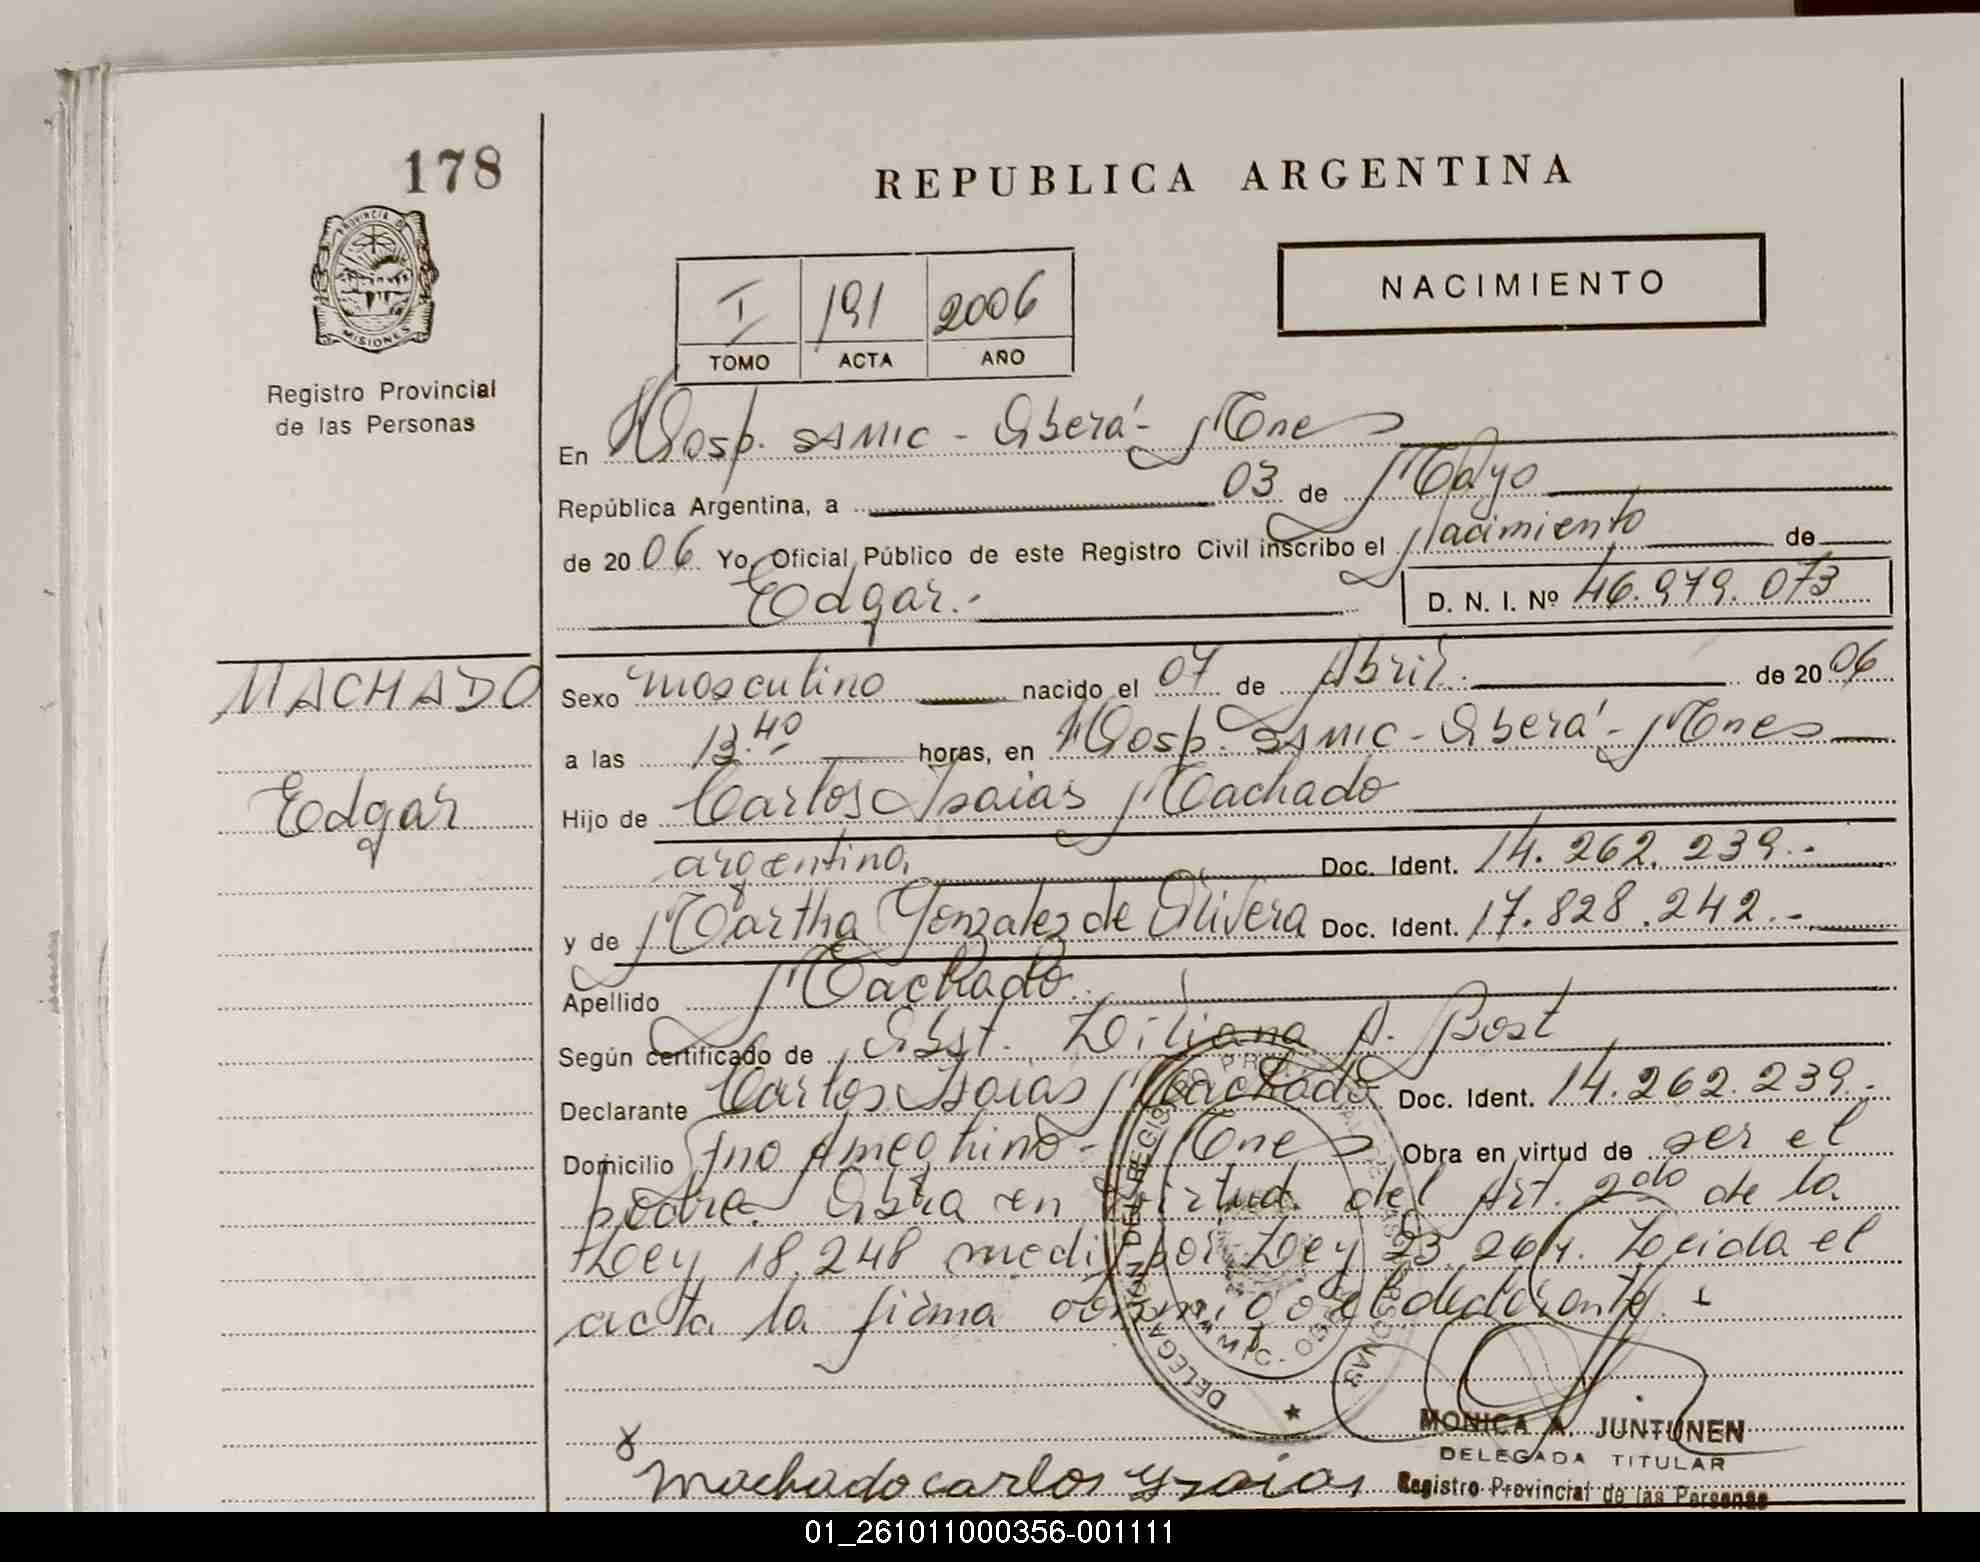 178
PROVINCIA DE
MISIONES
Registro Provincial
de las Personas
REPUBLICA ARGENTINA
I 191 2006
TOMO ACTA AÑO
NACIMIENTO
En Hosp. SAMIC - Oberá - Mnes
República Argentina, a 03 de Mayo
de 2006 Yo, Oficial Público de este Registro Civil inscribo el Nacimiento de
Edgar.- D. N. I. Nº 46.979.073
MACHADO
Edgar
Sexo masculino nacido el 07 de Abril. de 2006
a las 13.40 horas, en Hosp. SAMIC - Oberá - Mnes
Hijo de Carlos Isaias Machado
argentino, Doc. Ident. 14.262.239.-
y de Martha Gonzalez de Olivera Doc. Ident. 17.828.242.-
Apellido Machado.
Según certificado de Obst. Liliana A. Bost
Declarante Carlos Isaias Machado Doc. Ident. 14.262.239.-
Domicilio Fno Ameghino - Mnes Obra en virtud de ser el
padre. Obra en virtud del Art. 2do de la
Ley 18.248 modif por Ley 23.264. Leida el
acta la firma conmigo el declarante.
DELEGACION DEL REGISTRO
Machado carlos Ysaias
MONICA A. JUNTUNEN
DELEGADA TITULAR
Registro Provincial de las Personas
01_261011000356-001111